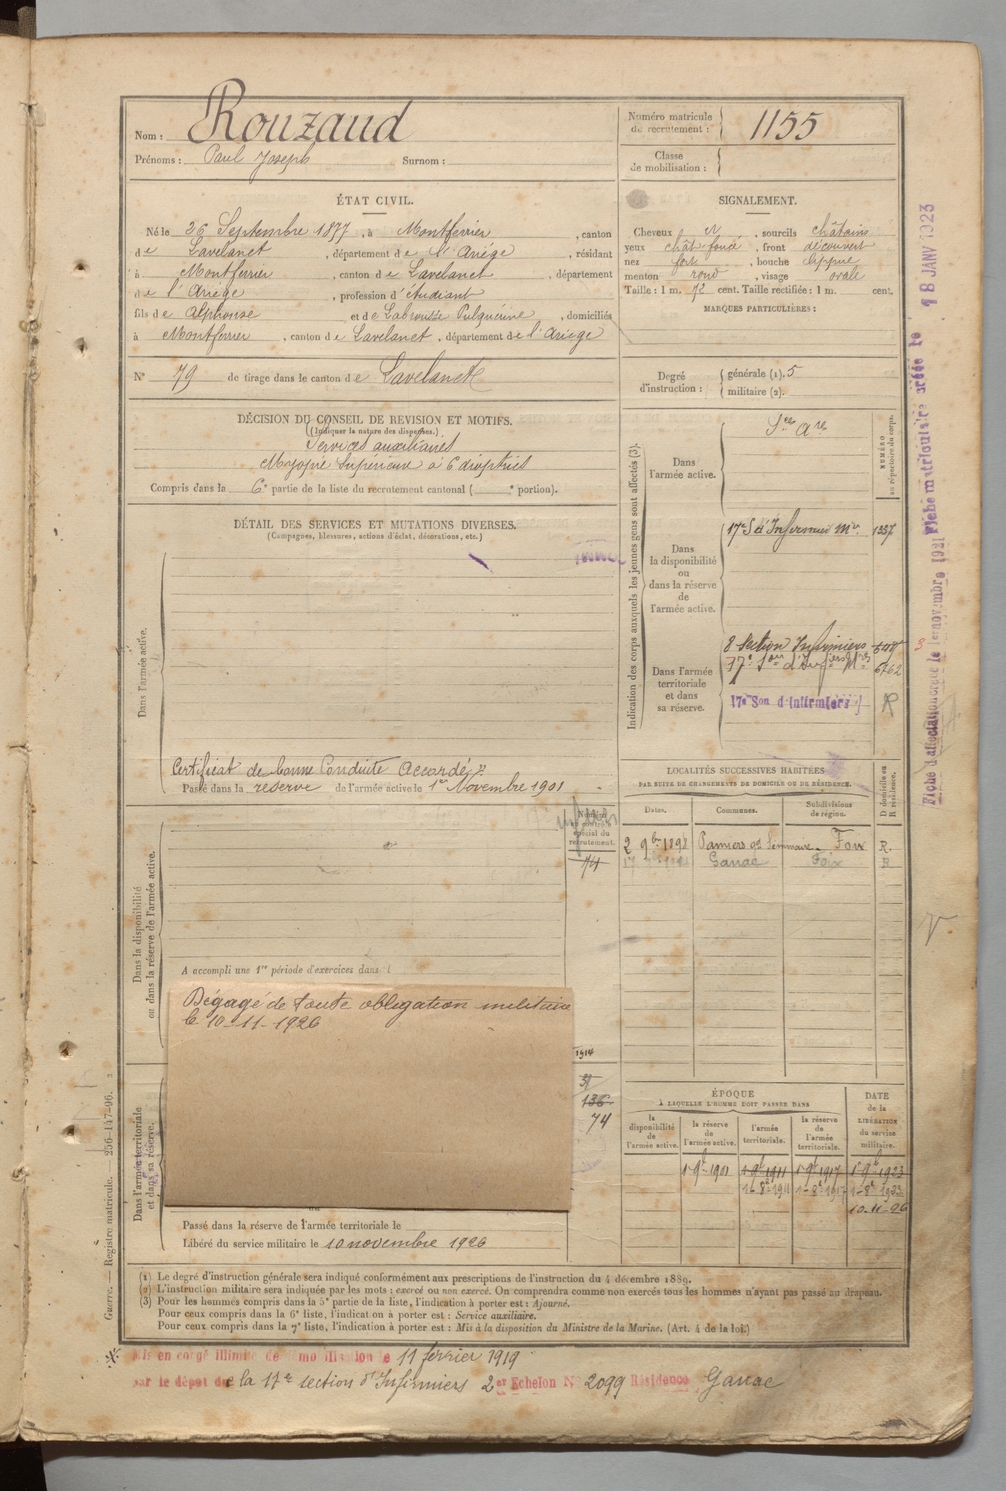 Nom : Rouzaud
Prénoms : Paul Joseph Surnom :
Numéro matricule
de recrutement : 1155
Classe
de mobilisation :
ÉTAT CIVIL.
Né le 26 Septembre 1877, à Montferrier, canton
de Lavelanet, département de l'Ariège, résidant
à Montferrier, canton de Lavelanet, département
de l'Ariège, profession d'étudiant
fils de Alphonse et de Labrousse Pulquérine, domiciliés
à Montferrier, canton de Lavelanet, département de l'Ariège
N° 79 de tirage dans le canton de Lavelanet
SIGNALEMENT.
Cheveux N, sourcils châtains
yeux chât. foncé, front découvert
nez fort, bouche lippue
menton rond, visage ovale
Taille : 1 m. 72 cent. Taille rectifiée : 1 m. cent.
MARQUES PARTICULIÈRES :
Degré
d'instruction :
générale (1). 5
militaire (2).
DÉCISION DU CONSEIL DE REVISION ET MOTIFS.
(Indiquer la nature des dispenses.)
Services auxiliaires
Myopie Supérieure à 6 dioptries
Compris dans la 6e partie de la liste du recrutement cantonal ( e portion).
DÉTAIL DES SERVICES ET MUTATIONS DIVERSES.
(Campagnes, blessures, actions d'éclat, décorations, etc.)
Dans l'armée active.
Certificat de bonne Conduite Accordé
Passé dans la réserve de l'armée active le 1er Novembre 1901
Indication des corps auxquels les jeunes gens sont affectés (3).
NUMÉRO
au répertoire du corps.
Dans
l'armée active.
Sces Are
Dans
la disponibilité
ou
dans la réserve
de
l'armée active.
17e S d'Infirmiers Mres 1337
Dans l'armée
territoriale
et dans
sa réserve.
8 Section Infirmiers
17e Son d'Infiers Mres 6762
17e Son d'Infirmiers R
LOCALITÉS SUCCESSIVES HABITÉES
PAR SUITE DE CHANGEMENTS DE DOMICILE OU DE RÉSIDENCE.
D domicile ou
R résidence.
Dates. Communes. Subdivisions
de région.
2 9bre 1898 Pamiers gd Séminaire. Foix R.
Ganac Foix R
Dans la disponibilité
ou dans la réserve de l'armée active.
Numéro
au contrôle
spécial du
recrutement.
74
A accompli une 1re période d'exercices dans l
Dégagé de toute obligation militaire
le 10-11-1926
1914
Dans l'armée territoriale
et dans sa réserve.
31
136
74
Passé dans la réserve de l'armée territoriale le
Libéré du service militaire le 10 novembre 1926
ÉPOQUE
À LAQUELLE L'HOMME DOIT PASSER DANS
la
disponibilité
de
l'armée active.
la réserve
de
l'armée active.
l'armée
territoriale.
la réserve
de
l'armée
territoriale.
DATE
de la
LIBÉRATION
du service
militaire.
1-9bre 1901 1-9bre 1911 1-9bre 1917 1-9bre 1923
1-8bre 1911 1-8bre 1917 1-8bre 1923
10-11-26
(1) Le degré d'instruction générale sera indiqué conformément aux prescriptions de l'instruction du 4 décembre 1889.
(2) L'instruction militaire sera indiquée par les mots : exercé ou non exercé. On comprendra comme non exercés tous les hommes n'ayant pas passé au drapeau.
(3) Pour les hommes compris dans la 5e partie de la liste, l'indication à porter est : Ajourné.
Pour ceux compris dans la 6e liste, l'indication à porter est : Service auxiliaire.
Pour ceux compris dans la 7e liste, l'indication à porter est : Mis à la disposition du Ministre de la Marine. (Art. 4 de la loi.)
Mis en congé illimité de démobilisation le 11 février 1919
par le dépôt de la 17e section d'Infirmiers 2er Echelon N° 2099 Résidence Ganac
Guerre. — Registre matricule. — 256-147-96.
Fiche d'affectation créée le 1er novembre 1921 Fiche matriculaire créée le 18 JANV 1923